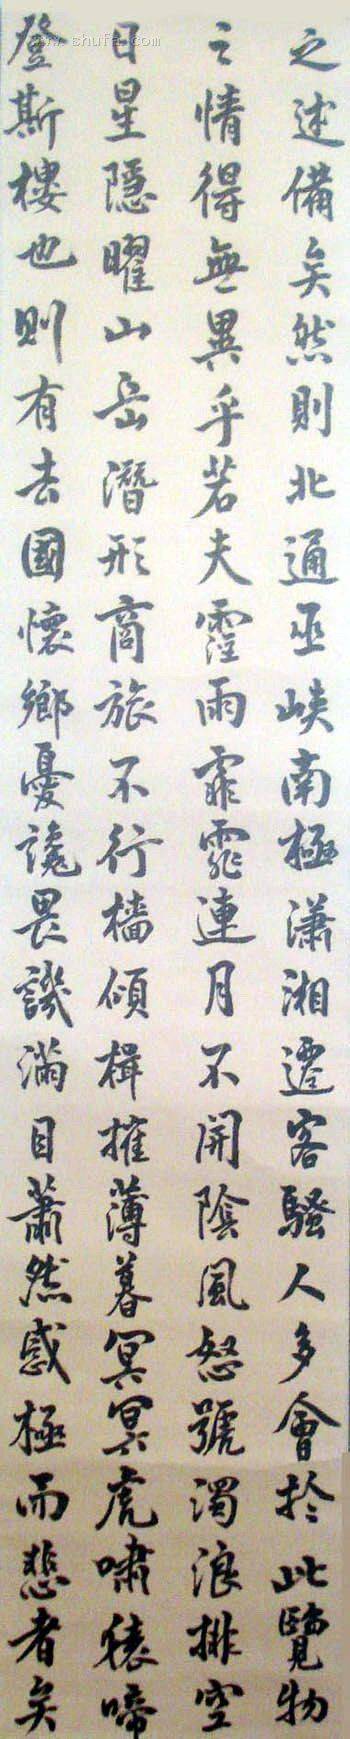 之述備矣然則北通巫峽南極瀟湘遷客騷人多會於此覽物
之情得無異乎若夫霪雨霏霏連月不開陰風怒號濁浪排空
日星隱曜山岳潛形商旅不行檣傾楫摧薄暮冥冥虎嘯猿啼
登斯樓也則有去國懷鄉憂讒畏譏滿目蕭然感極而悲者矣
www.shufa.com